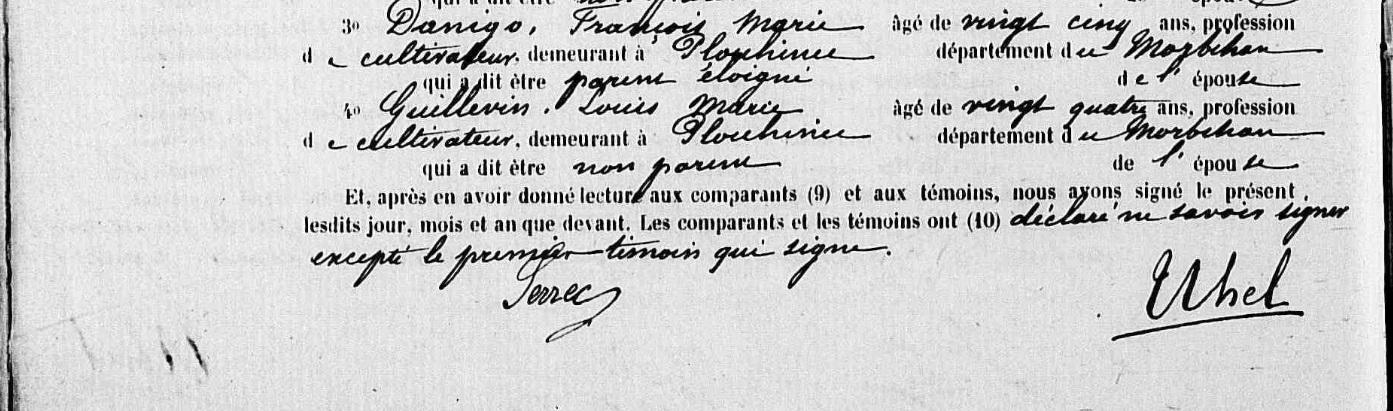 qui a dit être non parent de l'épouse
3º Danigo, François Marie âgé de vingt cinq ans, profession
de cultivateur, demeurant à Plouhinec département du Morbihan
qui a dit être parent éloigné de l'épouse
4º Guillevin, Louis Marie âgé de vingt quatre ans, profession
de cultivateur, demeurant à Plouhinec département du Morbihan
qui a dit être non parent de l'épouse
Et, après en avoir donné lecture aux comparants (9) et aux témoins, nous avons signé le présent
lesdits jour, mois et an que devant. Les comparants et les témoins ont (10) déclaré ne savoir signer
excepté le premier témoin qui signe.
Serrec Uhel